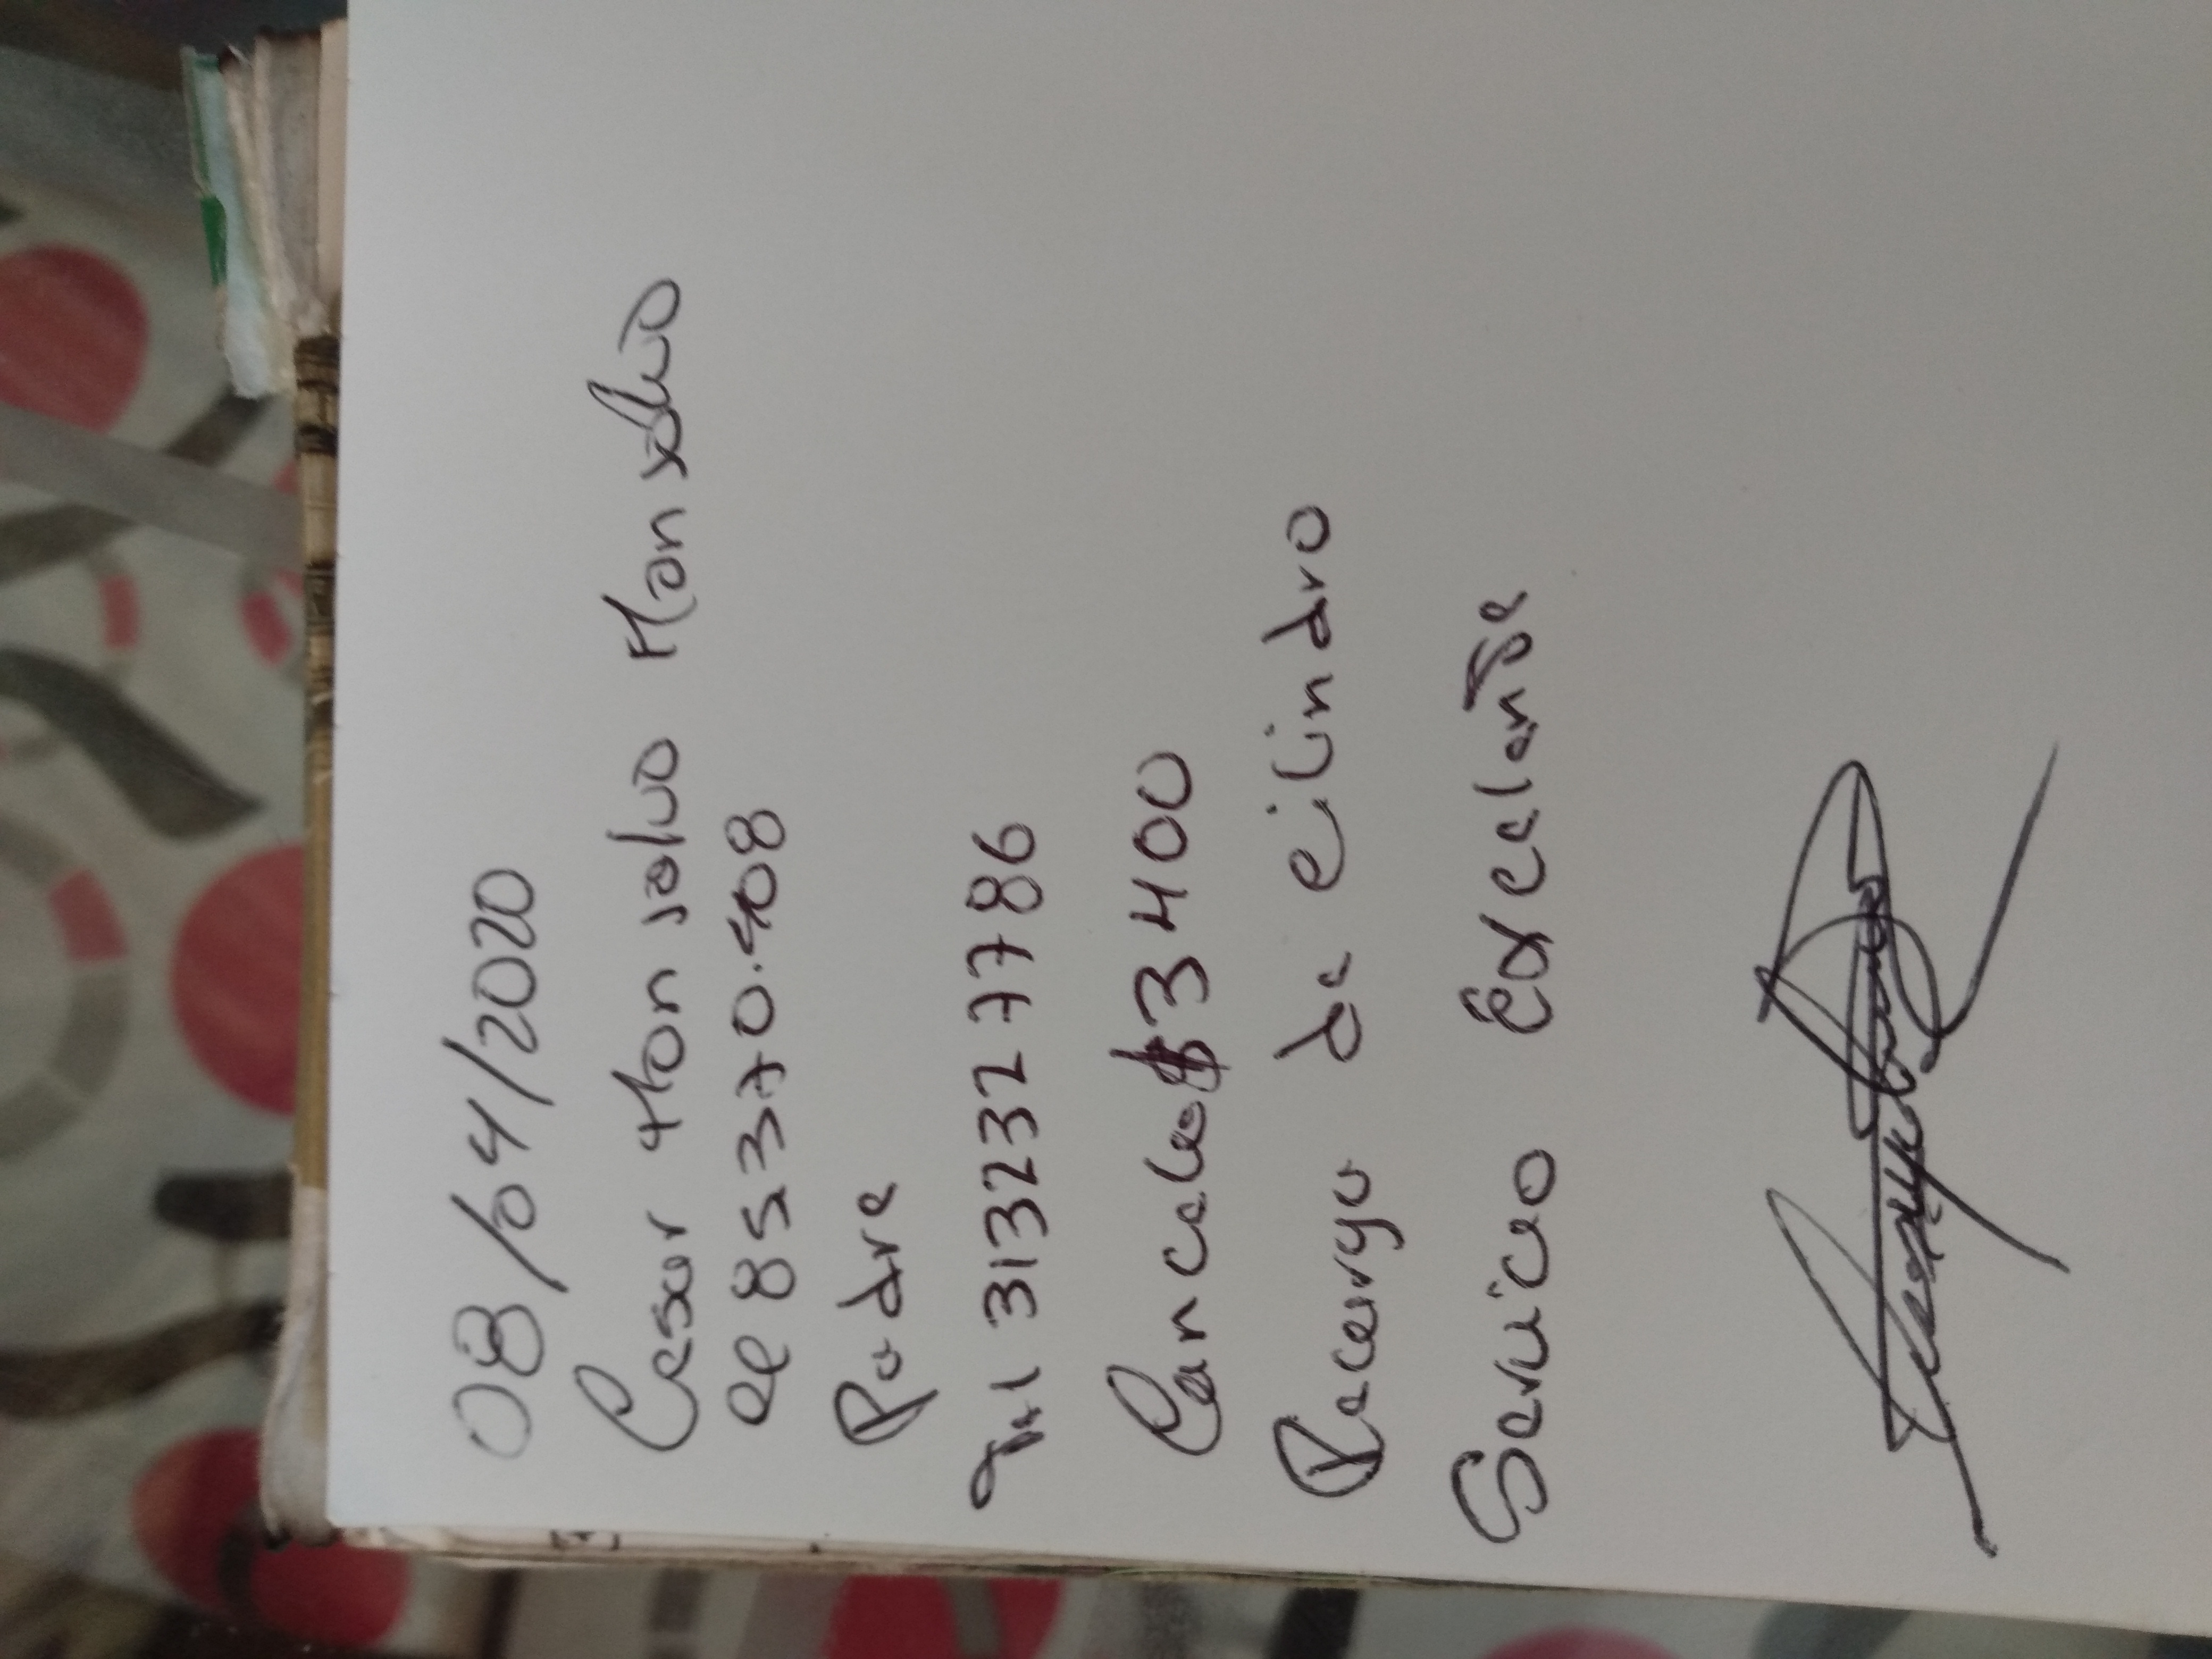 08/04/2020
Cesar Monsalvo Monsalvo
CC 85370.408
Padre
Tel 3132327786
Cancelo $3400
Recargo de cilindro
Servicio Excelente